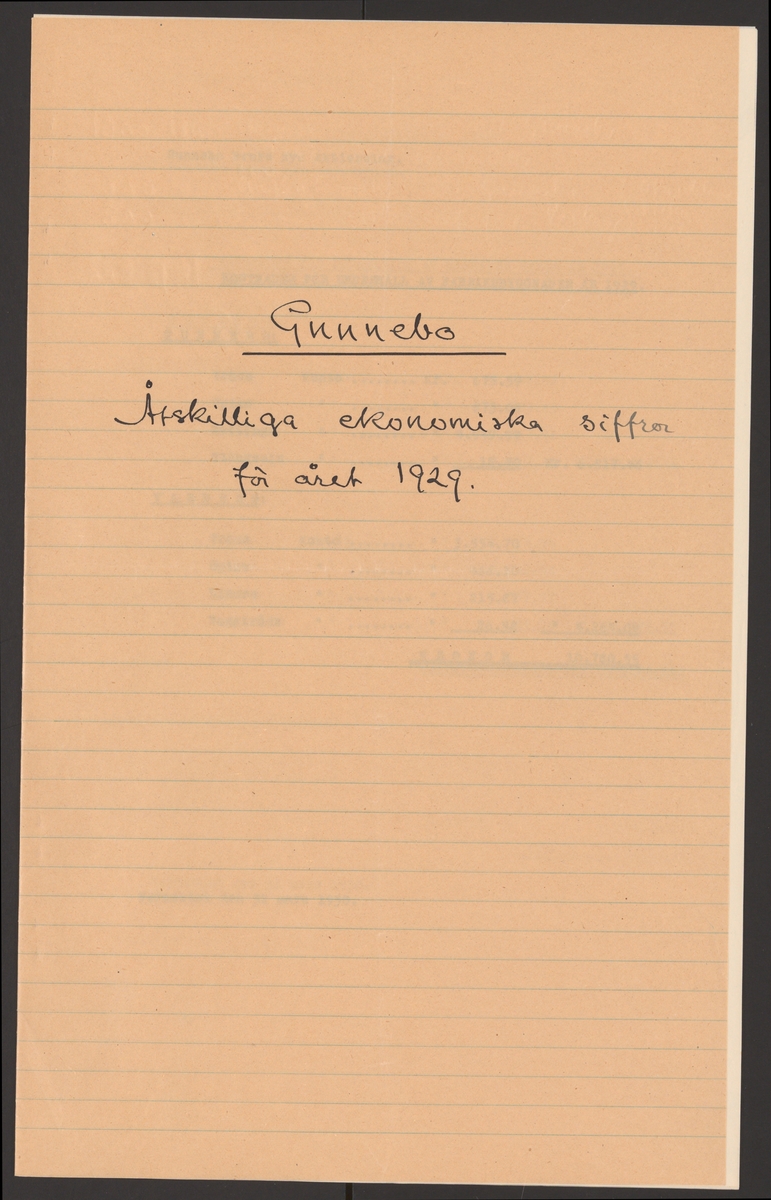 Gunnebo
Åtskilliga ekonomiska siffror
för året 1929.